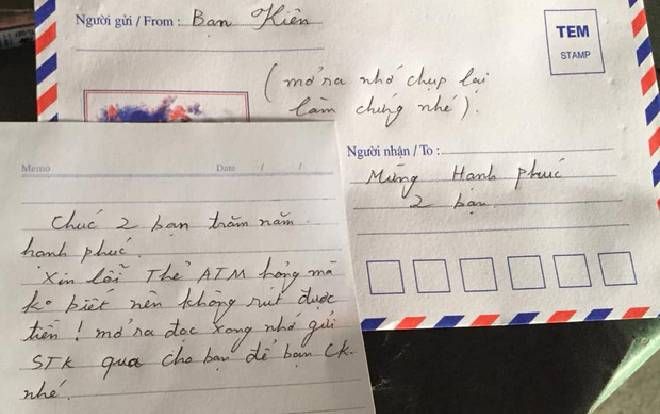 Người gửi / From : Bạn Kiên
TEM
STAMP
(mở ra nhớ chụp lại
làm chứng nhé).
Người nhận / To :
Mừng Hạnh phúc
2 bạn
Memo Date / /
Chúc 2 bạn trăm năm
hạnh phúc.
Xin lỗi Thẻ ATM hỏng mà
ko biết nên không rút được
tiền ! mở ra đọc xong nhớ gửi
STK qua cho bạn để bạn CK
nhé.